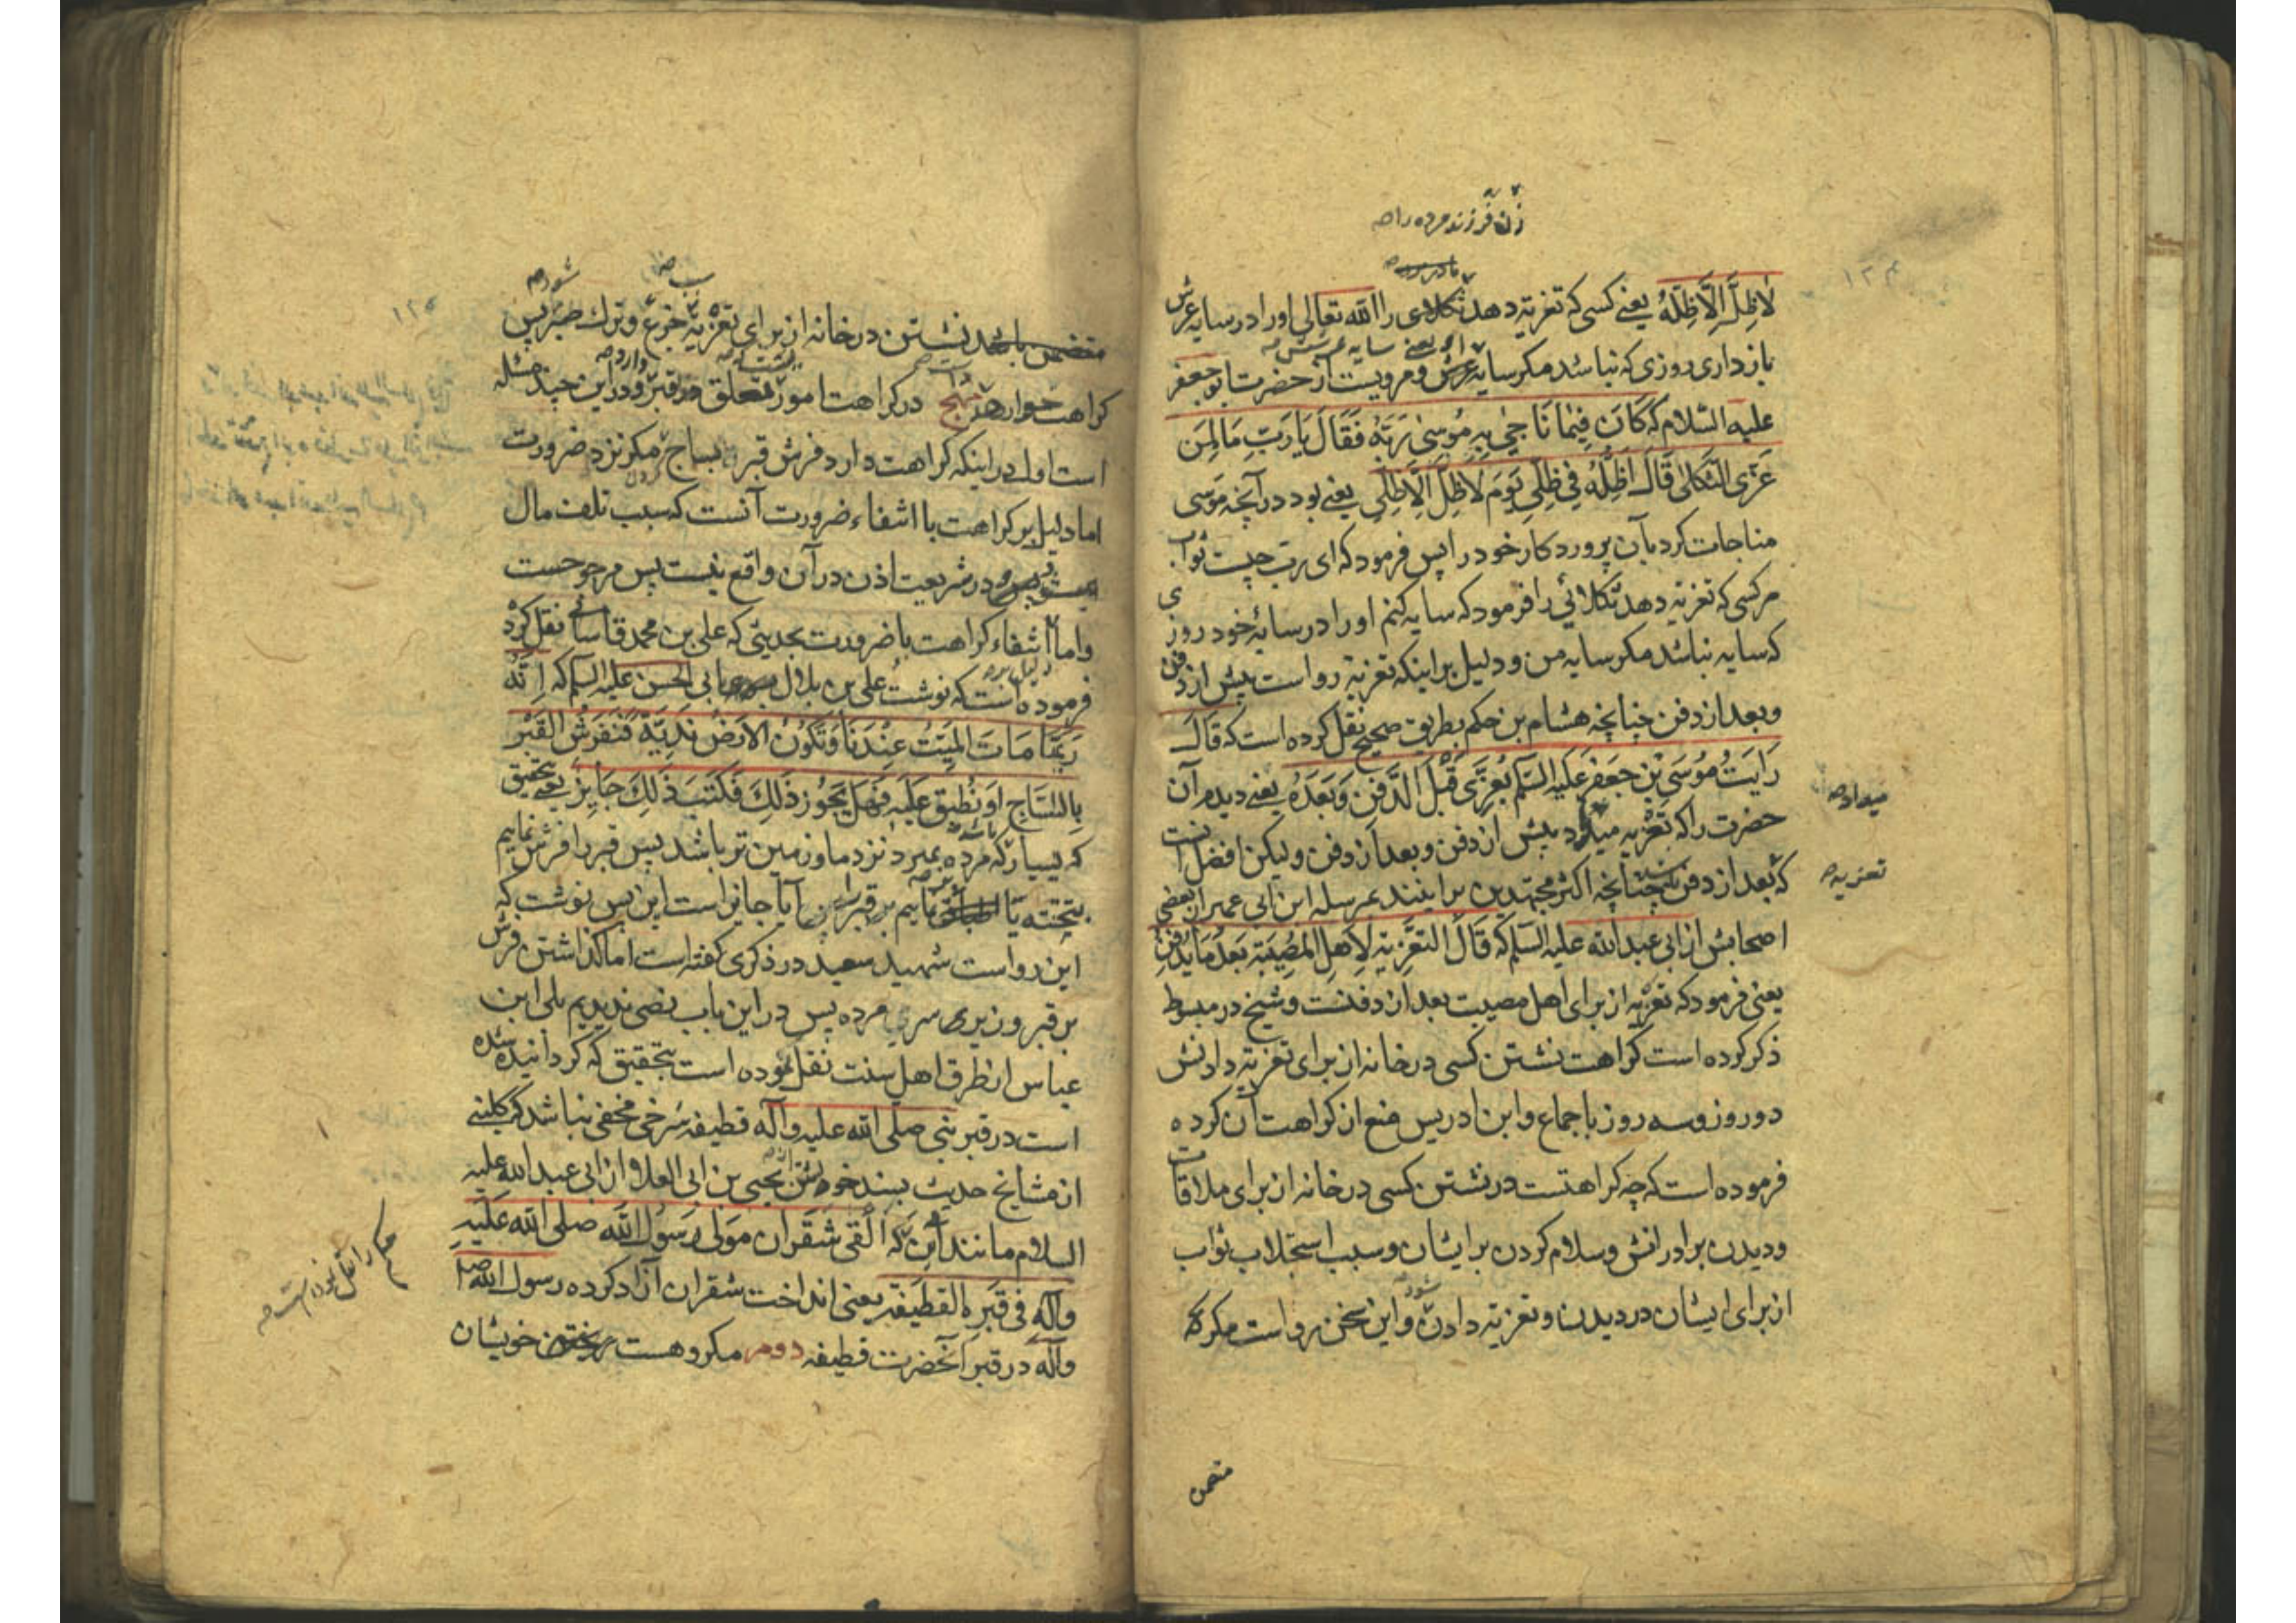 زن فرزند مرده را صح
لَاظِلَّ اِلَّاظِلُّهُ یعنے کسی که تعزیه دهد ثکلای را الله تعالی اورا در سایه عرش
او یعنے سایه عرشش صح
بازداری روزی که نباشد مکر سایه عرش و مرویست از حضرت ابوجعفر
علیه السّلام که کَانَ فِیمَا نَاجیٰ بِهِ مُوسیٰ رَبَّهُ فَقَالَ یَارَبِّ مَا لِمَن
عَزَّی الثَّکلیٰ قَالَ اُظِلُّهُ فِی ظِلِّی یَومَ لَاظِلَّ اِلَّاظِلِّی یعنے بود در آنچه موسی
مناجات کرد بآن پروردکار خود را پس فرمود که ای رب چیست ثواب
مر کسی که تعزیه دهد ثکلائی را فرمود که سایه کنم اورا در سایۀ خود روزی
که سایه نباشد مکر سایه من و دلیل بر اینکه تعزیه رواست پیش از دفن
و بعد از دفن چنانچه هشام بن حکم بطریق صحیح نقل کرده است که قَالَ
رَاَیتُ مُوسَی بْنَ جَعفَر عَلَیهِ السَّلم یُعَزِّی قَبْلَ الدَّفنِ وَبَعدَهُ یعنے دیدم آن
میداد صح
حضرت را که تعزیه پیش از دفن و بعد از دفن ولیکن افضل انست
تعزیه صح
که بعد از دفن چنانچه اکثر مجتهدین برانیند بمرسله ابن ابی عمیر از بعضی
اصحابش از ابی عبدالله علیه السّلم که قَالَ التَعزِیَه لِاَهلِ المُصِیبَة بَعدَ مَا یُدفَن
یعنی فرمود که تعزیه از برای اهل مصیبت بعد از دفنست و شیخ در مبسوط
ذکر کرده است کراهت نشستن کسی در خانه از برای تعزیه دادنش
دو روز و سه روز باجماع و ابن ادریس منع از کراهت آن کرده
فرموده است که چه کراهتست در نشستن کسی در خانه از برای ملاقات
و دیدن برادرانش و سلام کردن بر ایشان و سبب استجلاب ثواب
شود
از برای ایشان در دیدن و تعزیه دادن و این سخن رواست مکر که
متضمن
۱۲۵
سبب صح
شود صح
متضمن باشد نشستن در خانه از برای تعزیه جزع و ترک صبر پس
کراهت دارد نهج در کراهت امور متعلق قبر و درین چند مسئله
است اول در اینکه کراهت دارد فرش قبر بساج مکر نزد ضرورت
اما دلیل بر کراهت با انتفاء ضرورت آنست که سبب تلف مال
در شریعت اذن در آن واقع نیست پس مرجوحست
و اما انتفاء کراهت با ضرورت بحدیثی که علی بن محمد قاسانی نقل کرده
فرموده است که نوشت علی بن بلال ابی الحسن علیه السلم که اِنَّهُ
رُبَّمَا مَاتَ المَیِّتُ عِنْدَنَا وَتَکُونُ الاَرضُ نَدِیَّةً فَنَفرُشُ القَبْرَ
بِالسَّاجِ اَو نُطبِقُ عَلَیهِ فَهَل یَجُوز ذٰلِكَ فَکَتَبَ ذٰلِكَ جَایِز یعنے بتحقیق
که بسیار که مرده بمیرد نزد ما و زمین تر باشد پس قبر را فرش نماییم
بتخته یا نماییم بر قبر آیا جایز است این پس نوشت که
این رواست شهید سعید در ذکری کفته است اما کذاشتن فرش
بر قبر و زیری سر مرده پس در این باب نصی ندیدیم بلی ابن
عباس از طرق اهل سنت نقل نموده است بتحقیق که کردانیده شده
است در قبر نبی صلی الله علیه وآله قطیفه سرخی مخفی نباشد که کلینے
از مشایخ حدیث بسند خودش از یحیی بن ابی العلا و از ابی عبدالله علیه
السلام مانند این که اَلْقی شَقران مَولٰی رَسُولُ الله صلی الله عَلَیهِ
را نقل نموده است صح
وآله فی قَبرِه القَطیفَه یعنی انداخت شقران آزاد کرده رسول الله صلی
وآله در قبر آنحضرت قطیفه دوم مکروهست ریختن خویشان